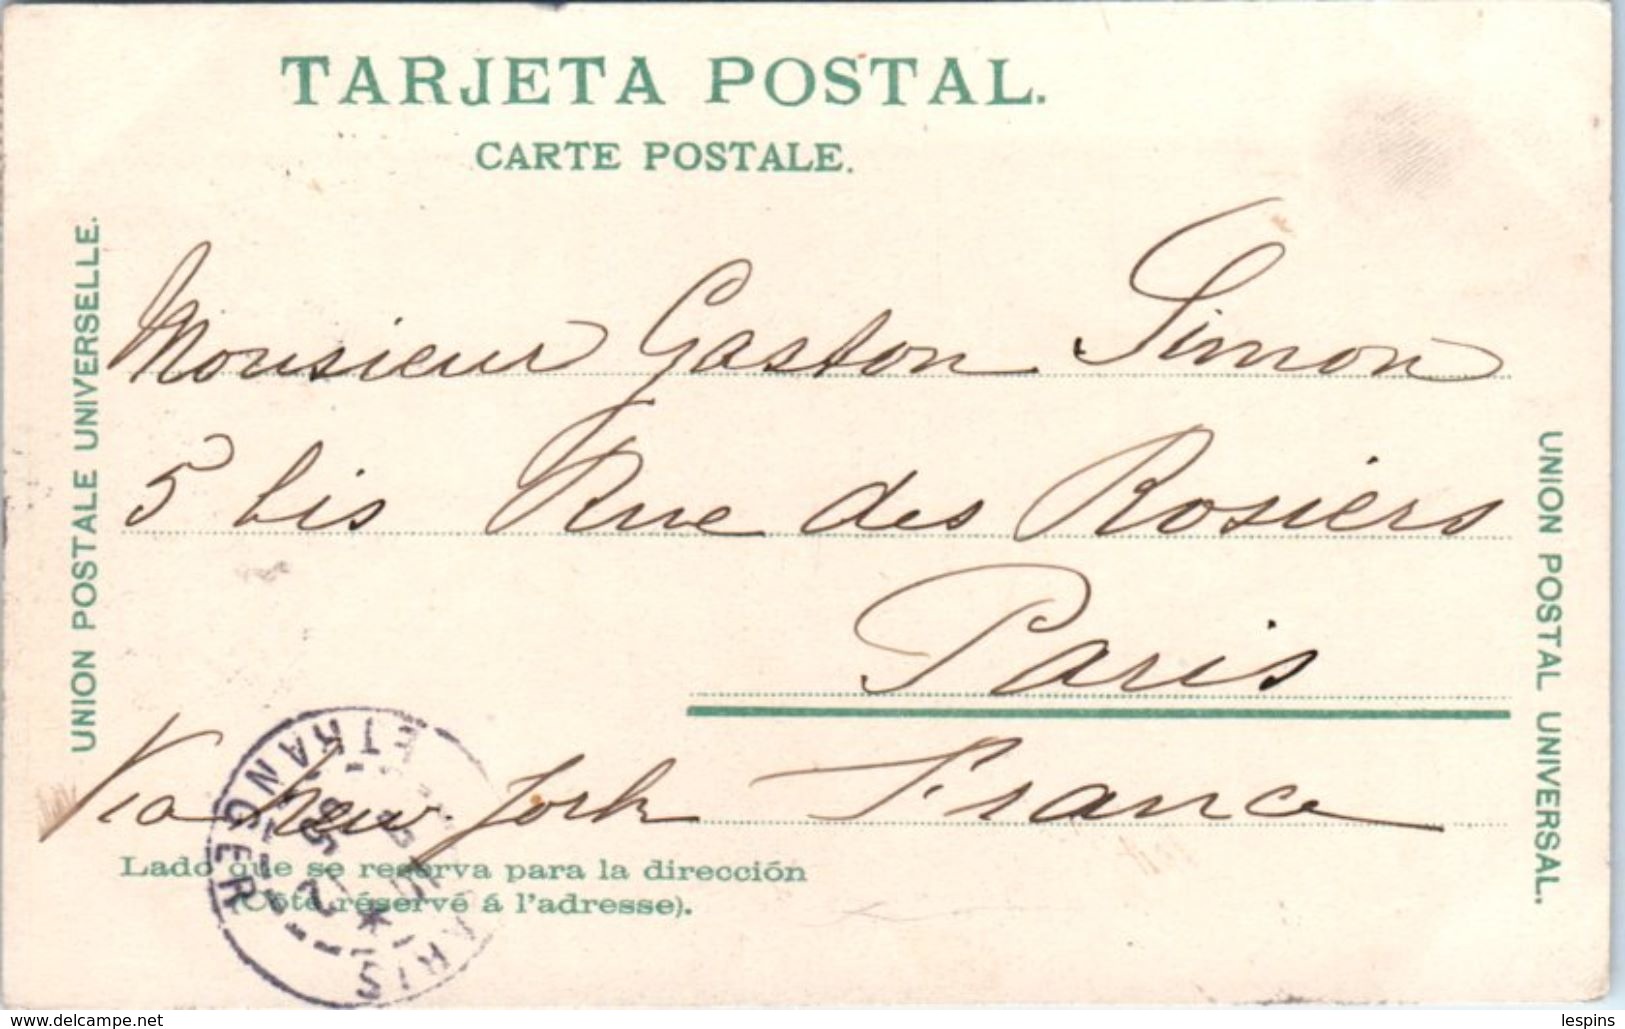 TARJETA POSTAL.
CARTE POSTALE.
UNION POSTALE UNIVERSELLE.
Monsieur Gaston Simon
5 bis Rue des Rosiers
Paris
Via New York France
UNION POSTAL UNIVERSAL.
Lado que se reserva para la dirección
(Côté réservé á l'adresse).
PARIS
ETRANGER
www.delcampe.net
lespins